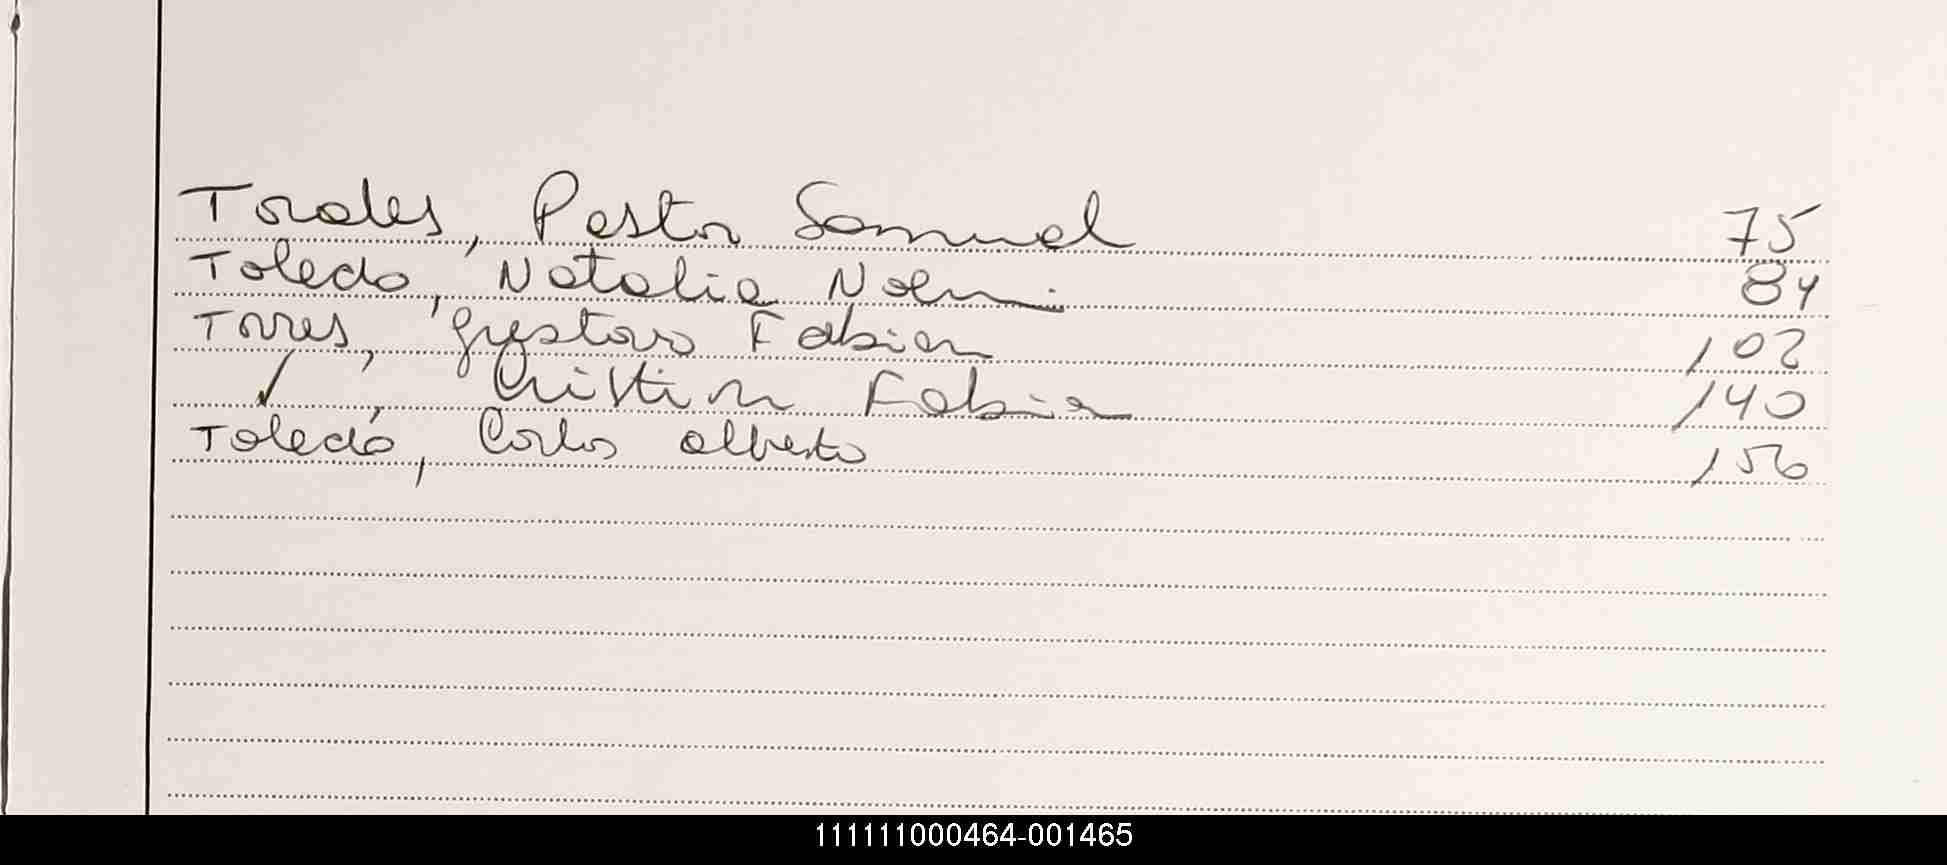 Torales, Pastor Samuel 75
Toledo, Natalia Noemi 84
Torres, Gustavo Fabian 102
/ , Cristian Fabian 140
Toledo, Carlos alberto 156
111111000464-001465